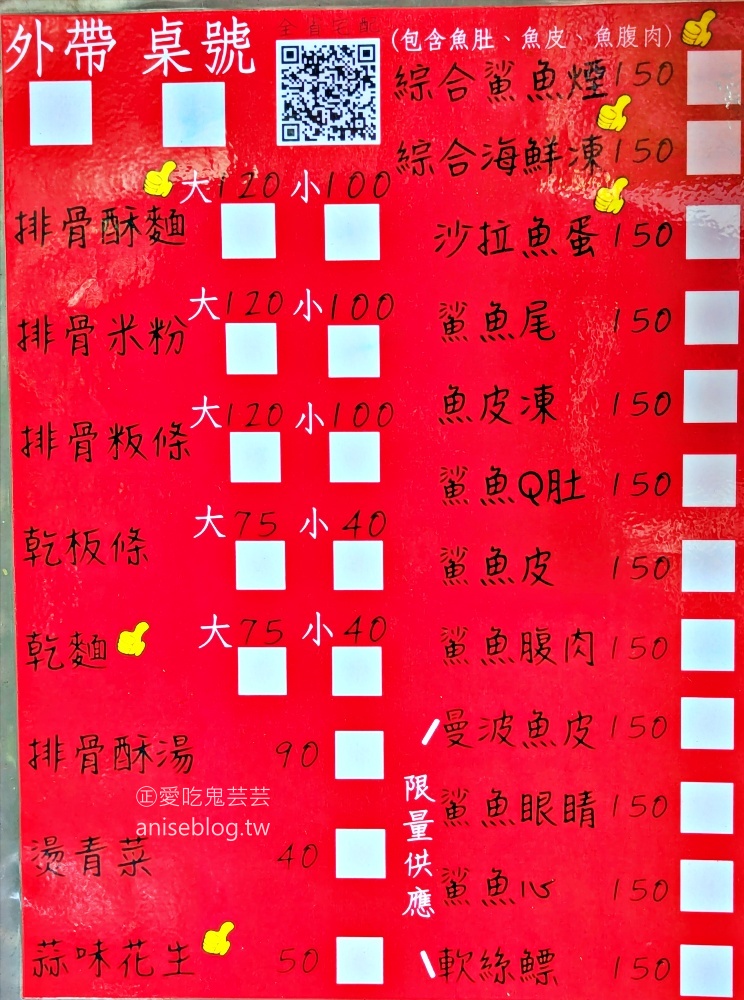 外帶 桌號
全省宅配
大120 小100
排骨酥麵
大120 小100
排骨米粉
大120 小100
排骨粄條
大75 小40
乾板條
大75 小40
乾麵
排骨酥湯 90
燙青菜 40
蒜味花生 50
(包含魚肚、魚皮、魚腹肉)
綜合鯊魚煙150
綜合海鮮凍150
沙拉魚蛋150
鯊魚尾 150
魚皮凍 150
鯊魚Q肚 150
鯊魚皮 150
鯊魚腹肉 150
限量供應
曼波魚皮 150
鯊魚眼睛 150
鯊魚心 150
軟絲鰾 150
㊣愛吃鬼芸芸
aniseblog.tw